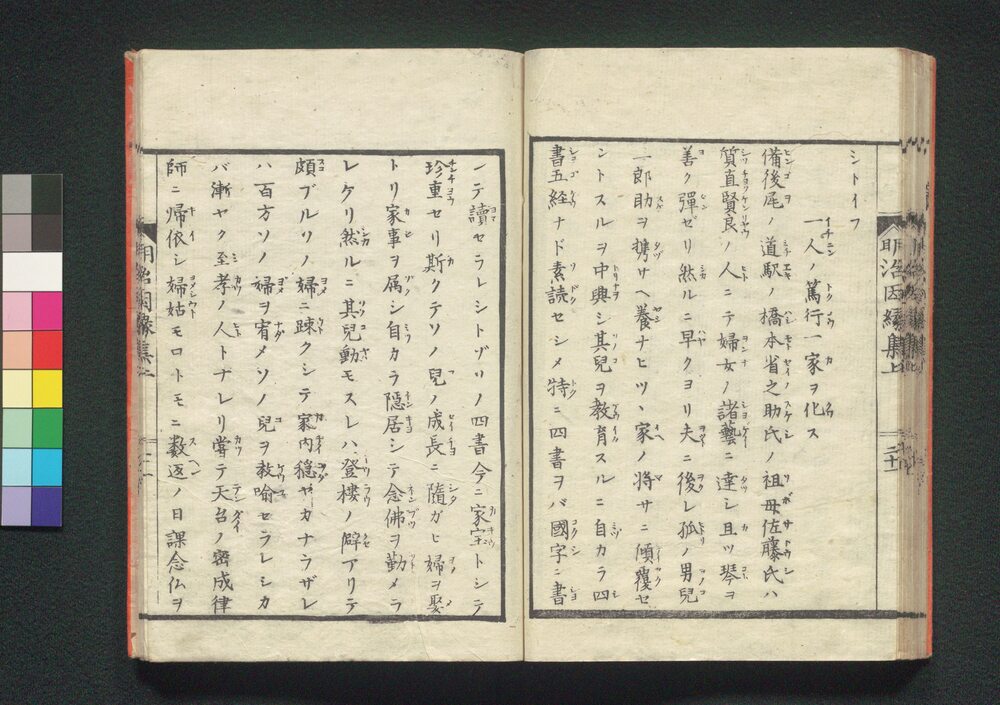 シトイフ
一人ノ篤行一家ヲ化ス
備後尾ノ道駅ノ橋本省之助氏ノ祖母佐藤氏ハ
質直賢良ノ人ニテ婦女ノ諸藝ニ達シ且ツ琴ヲ
善ク彈ゼリ然ルニ早クヨリ夫ニ後レ孤ノ男兒
一郎助ヲ携サヘ養ナヒツヽ家ノ将サニ傾覆セ
ントスルヲ中興シ其兒ヲ教育スルニ自カラ四
書五経ナド素読セシメ特ニ四書ヲバ國字ニ書
明治因縁集上
二十
ンテ讀セラレシトゾソノ四書今ニ家宝トシテ
珍重セリ斯クテソノ兒ノ成長ニ隨ガヒ婦ヲ娶
トリ家事ヲ属シ自カラ隠居シテ念佛ヲ勤メラ
レケリ然ルニ其兒動モスレハ登樓ノ癖アリテ
頗ブルソノ婦ニ疎クシテ家内穏ヤカナラザレ
ハ百方ソノ婦ヲ宥メソノ兒ヲ教喩セラレシカ
バ漸ヤク至孝ノ人トナレリ嘗テ天台ノ密成律
師ニ帰依シ婦姑モロトモニ数返ノ日課念仏ヲ
明治因縁集上